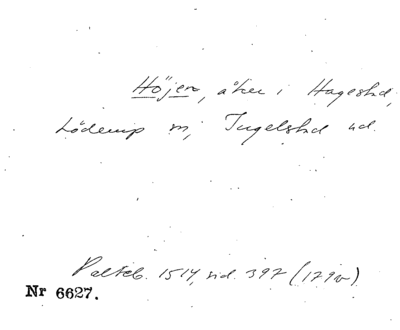 Höjen, åker i Hagestad,
Löderup sn, Ingelstad hd.
Palteb. 1514, sid. 397 (179v)
Nr 6627.